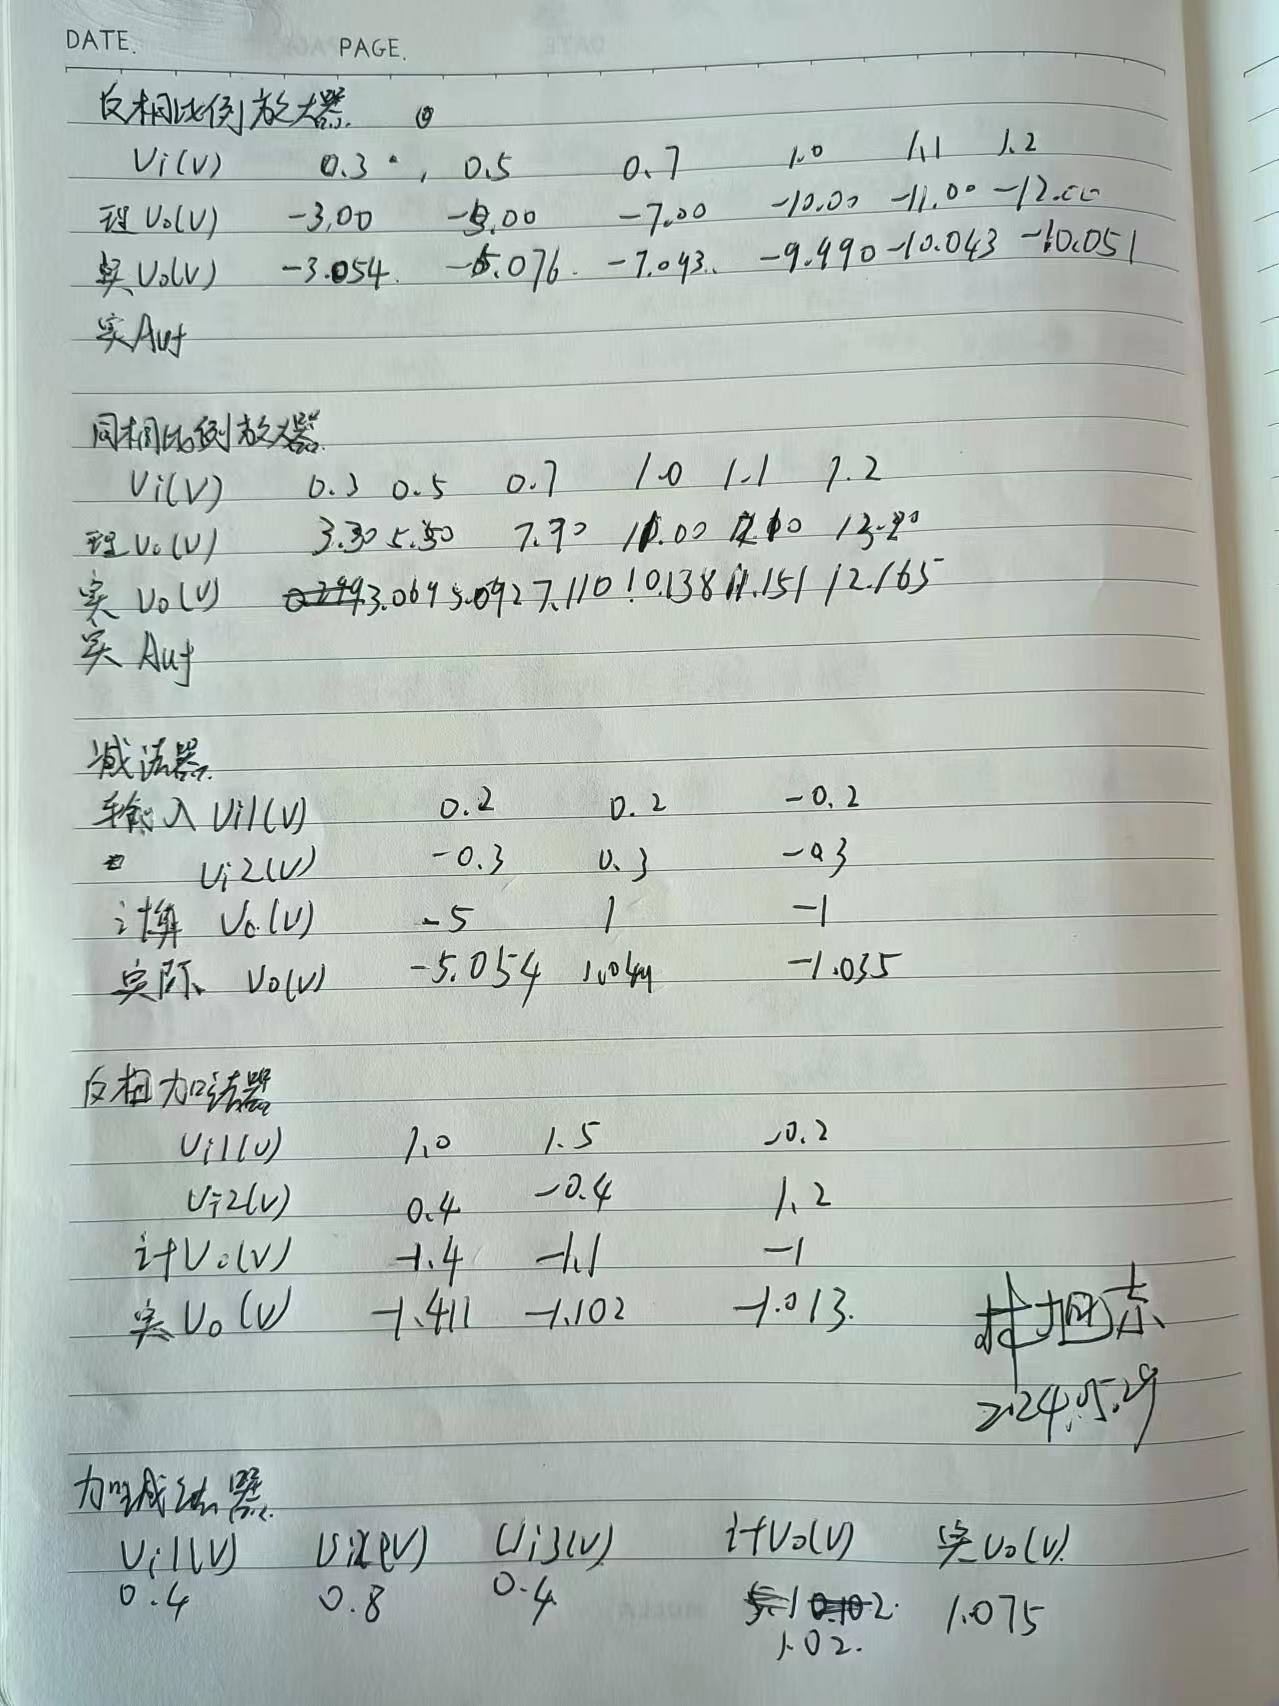 DATE. PAGE.
反相比例放大器
Vi(V) 0.3 0.5 0.7 1.0 1.1 1.2
理Vo(V) -3.00 -5.00 -7.00 -10.00 -11.00 -12.00
实Vo(V) -3.054 -5.076 -7.043 -9.990 -10.043 -10.051
实Auf
同相比例放大器
Vi(V) 0.3 0.5 0.7 1.0 1.1 1.2
理Vo(V) 3.30 5.50 7.70 11.00 12.10 13.20
实Vo(V) 3.069 5.092 7.110 10.138 11.151 12.165
实Auf
减法器
输入Vi1(V) 0.2 0.2 -0.2
Vi2(V) -0.3 0.3 -0.3
计算 Vo(V) -5 1 -1
实际 Vo(V) -5.054 1.044 -1.035
反相加法器
Vi1(V) 1.0 1.5 -0.2
Vi2(V) 0.4 -0.4 1.2
计Vo(V) -1.4 -1.1 -1
实Vo(V) -1.411 -1.102 -1.013
2024.05.29
加减法器
Vi1(V) Vi2(V) Vi3(V) 计Vo(V) 实Vo(V)
0.4 0.8 0.4 1.075
1.02